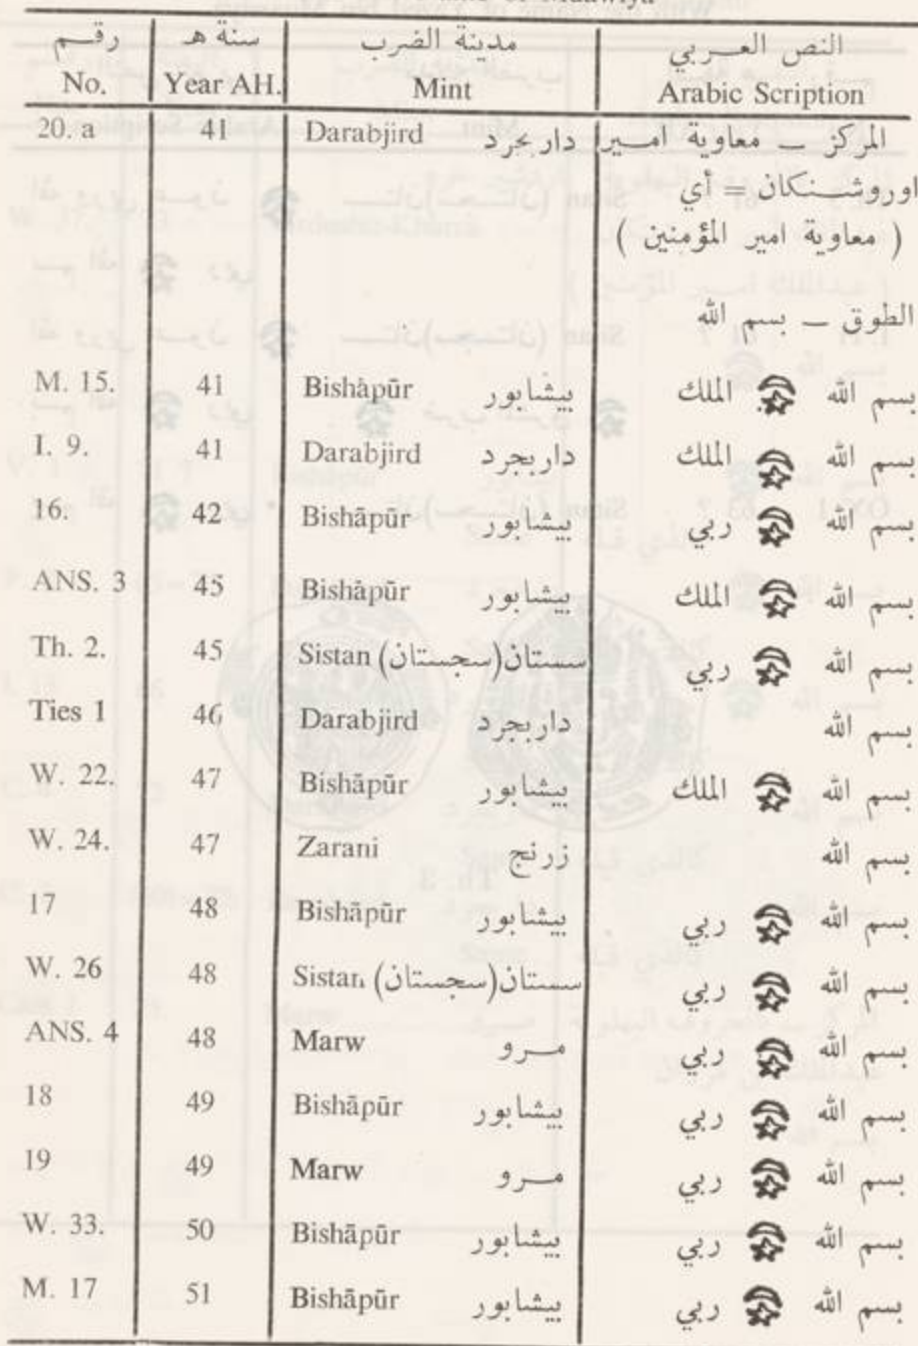 رقم سنة هـ مدينة الضرب النص العربي
No. Year AH. Mint Arabic Scription
20. a 41 Darabjird داربجرد المركز ــ معاوية امير
اوروشنكان = أي
( معاوية امير المؤمنين )
الطوق ــ بسم الله
M. 15. 41 Bishāpūr بيشابور بسم الله الملك
I. 9. 41 Darabjird داربجرد بسم الله الملك
16. 42 Bishāpūr بيشابور بسم الله ربي
ANS. 3 45 Bishāpūr بيشابور بسم الله الملك
Th. 2. 45 Sistan سستان(سجستان) بسم الله ربي
Ties 1 46 Darabjird داربجرد بسم الله
W. 22. 47 Bishāpūr بيشابور بسم الله الملك
W. 24. 47 Zarani زرنج بسم الله
17 48 Bishāpūr بيشابور بسم الله ربي
W. 26 48 Sistan سستان(سجستان) بسم الله ربي
ANS. 4 48 Marw مرو بسم الله ربي
18 49 Bishāpūr بيشابور بسم الله ربي
19 49 Marw مرو بسم الله ربي
W. 33. 50 Bishāpūr بيشابور بسم الله ربي
M. 17 51 Bishāpūr بيشابور بسم الله ربي